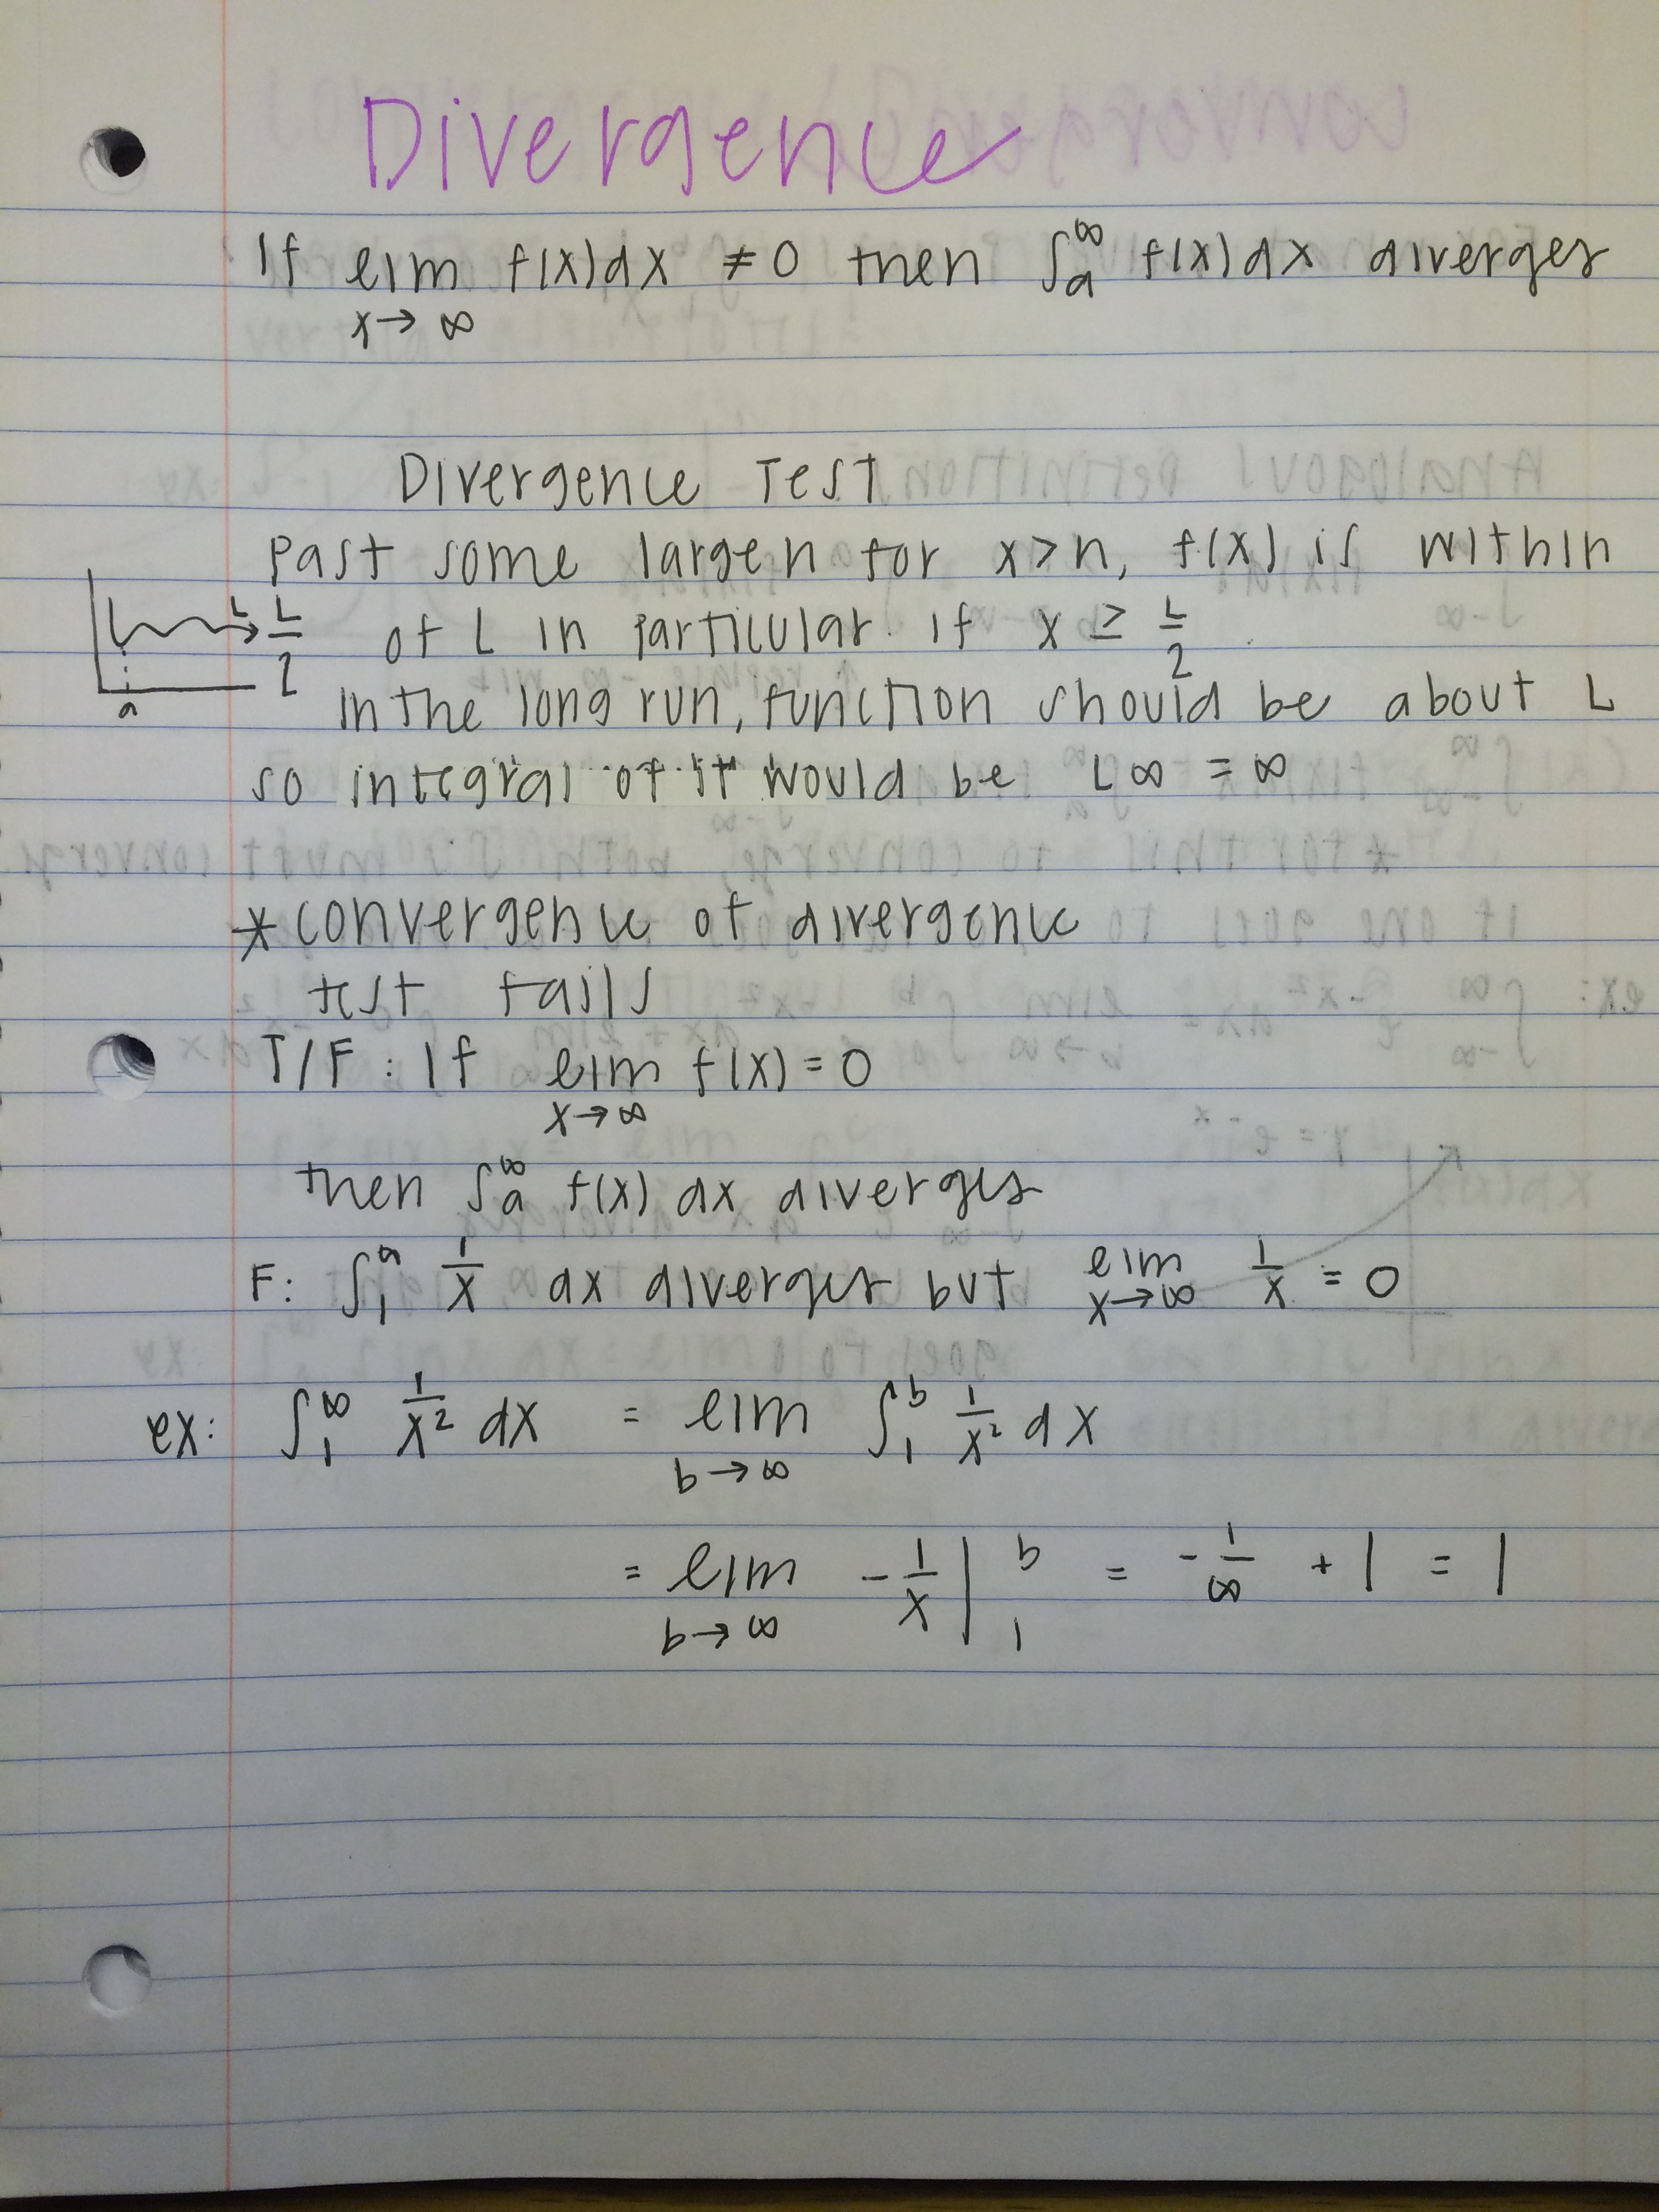 Divergence
If lim f(x)dx ≠ 0 then ∫ₐ^∞ f(x)dx diverges
x→∞
Divergence Test
Past some large n for x>n, f(x) is within
L
L/2 of L in particular if x ≥ L/2
a
in the long run, function should be about L
so integral of it would be L∞ = ∞
* convergence of divergence
test fails
T/F : If lim f(x) = 0
x→∞
then ∫ₐ^∞ f(x) dx diverges
F: ∫₁^a 1/x dx diverges but lim 1/x = 0
x→∞
ex: ∫₁^∞ 1/x² dx = lim ∫₁^b 1/x² dx
b→∞
= lim -1/x |₁^b = -1/∞ + 1 = 1
b→∞